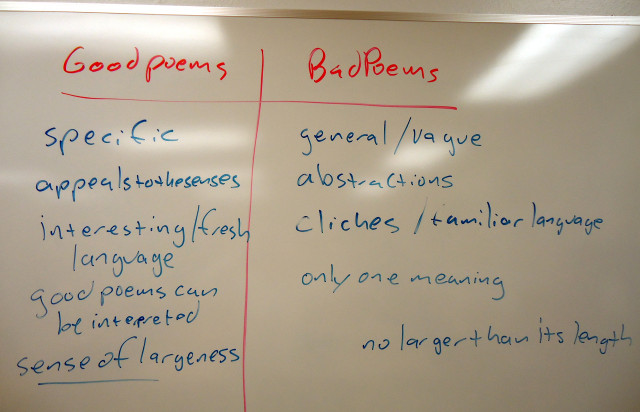 Good poems
Bad Poems
specific
general/vague
appeals to the senses
abstractions
interesting/fresh
language
cliches/familiar language
good poems can
be interpreted
only one meaning
sense of largeness
no larger than its length